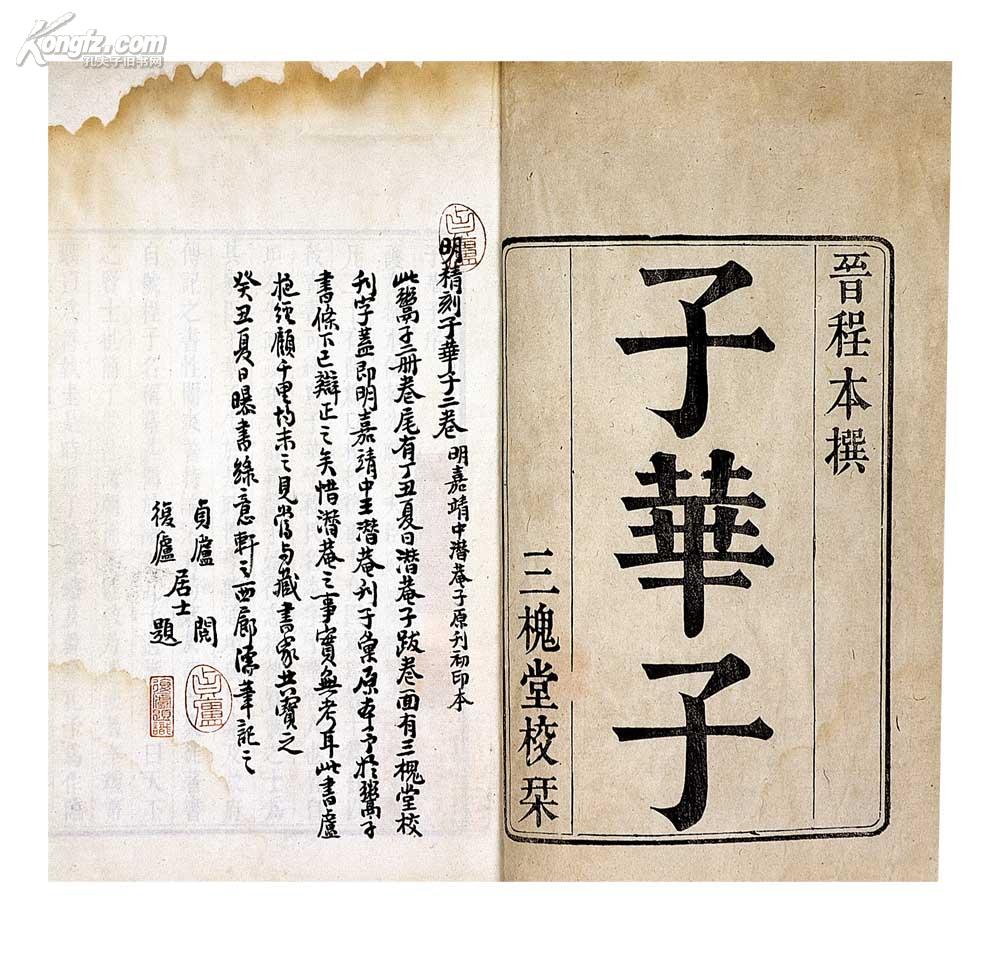 Kongfz.com
孔夫子旧书网
晉程本撰
子華子
三槐堂校栞
明精刻子華子二卷 明嘉靖中潛菴子原刊初印本
此鬻子二册卷尾有丁丑夏日潛菴子跋卷面有三槐堂校
刊字蓋即明嘉靖中王潛菴刊于彙原本予於鬻子
書條下已辯正之矣惜潛菴之事實無考耳此書盧
抱經顧千里均未之見當与藏書家共寶之
癸丑夏日曝書綠意軒之西廊濡筆記之
貞廬閲
復廬居士題
貞廬
貞廬